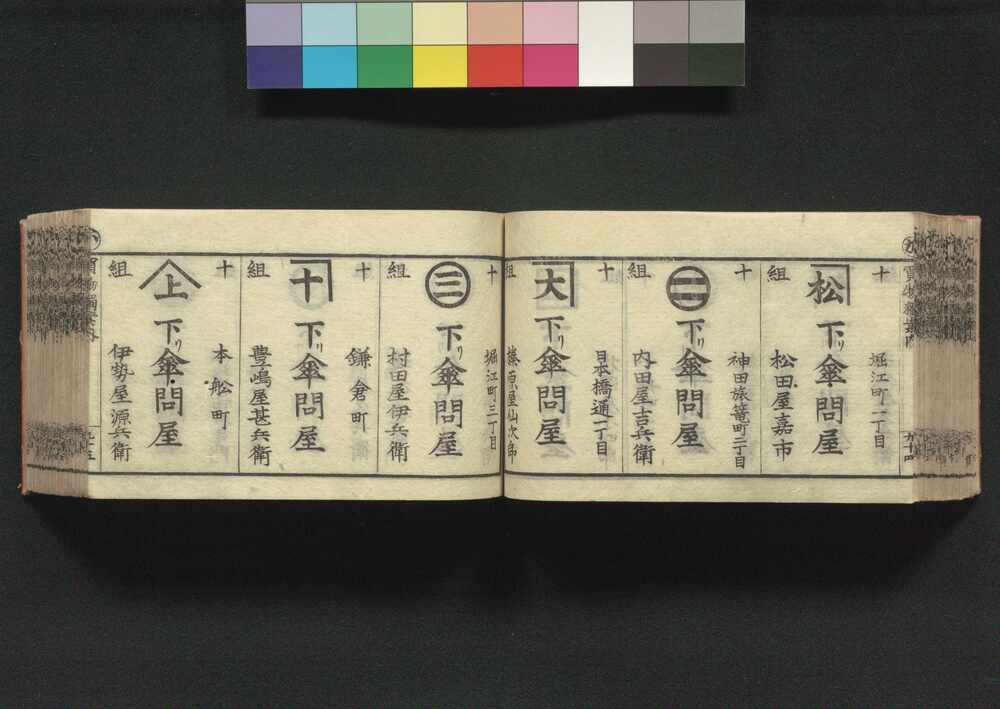 十
組
松
下リ傘問屋
堀江町一丁目
松田屋嘉市
十
組
二
下リ傘問屋
神田旅篭町二丁目
内田屋吉兵衛
十
組
大
下リ傘問屋
日本橋通一丁目
藤原屋仙次郎
十
組
三
下リ傘問屋
堀江町三丁目
村田屋伊兵衛
十
組
十
下リ傘問屋
鎌倉町
豊嶋屋甚兵衛
十
組
上
下リ傘問屋
本舩町
伊勢屋源兵衛